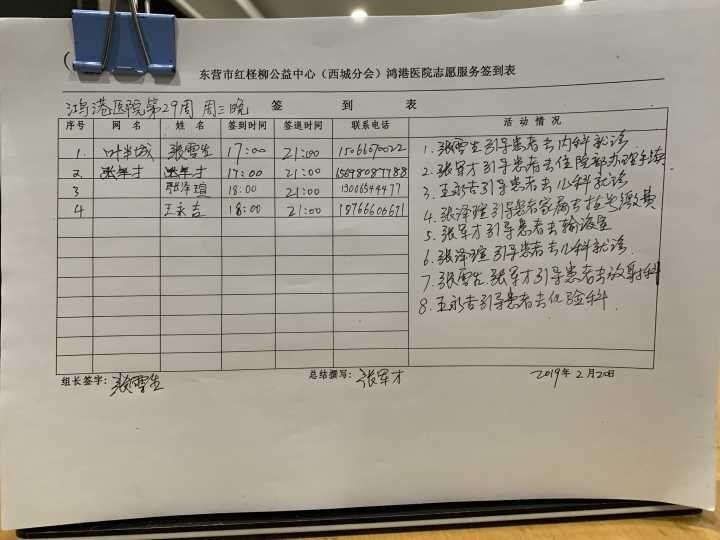 东营市红柽柳公益中心（西城分会）鸿港医院志愿服务签到表
鸿港医院第29周 周三晚 签到表
序号 网名 姓名 签到时间 签退时间 联系电话 活动情况
1. 叶半城 张雪生 17:00 21:00 15066070022
2. 张军才 张军才 17:00 21:00
3 张泽瑄 18:00 21:00 13006544477
4 王永吉 18:00 21:00 18766606671
1.张雪生引导患者去内科就诊
2.张军才引导患者去住院部办理手续
3.王永吉引导患者去儿科就诊
4.张泽瑄引导患者家属去挂号缴费
5.张军才引导患者去输液室
6.张泽瑄引导患者去儿科就诊.
7.张雪生.张军才引导患者去放射科
8.王永吉引导患者去化验科.
组长签字：张雪生 总结撰写：张军才 2019年2月20日